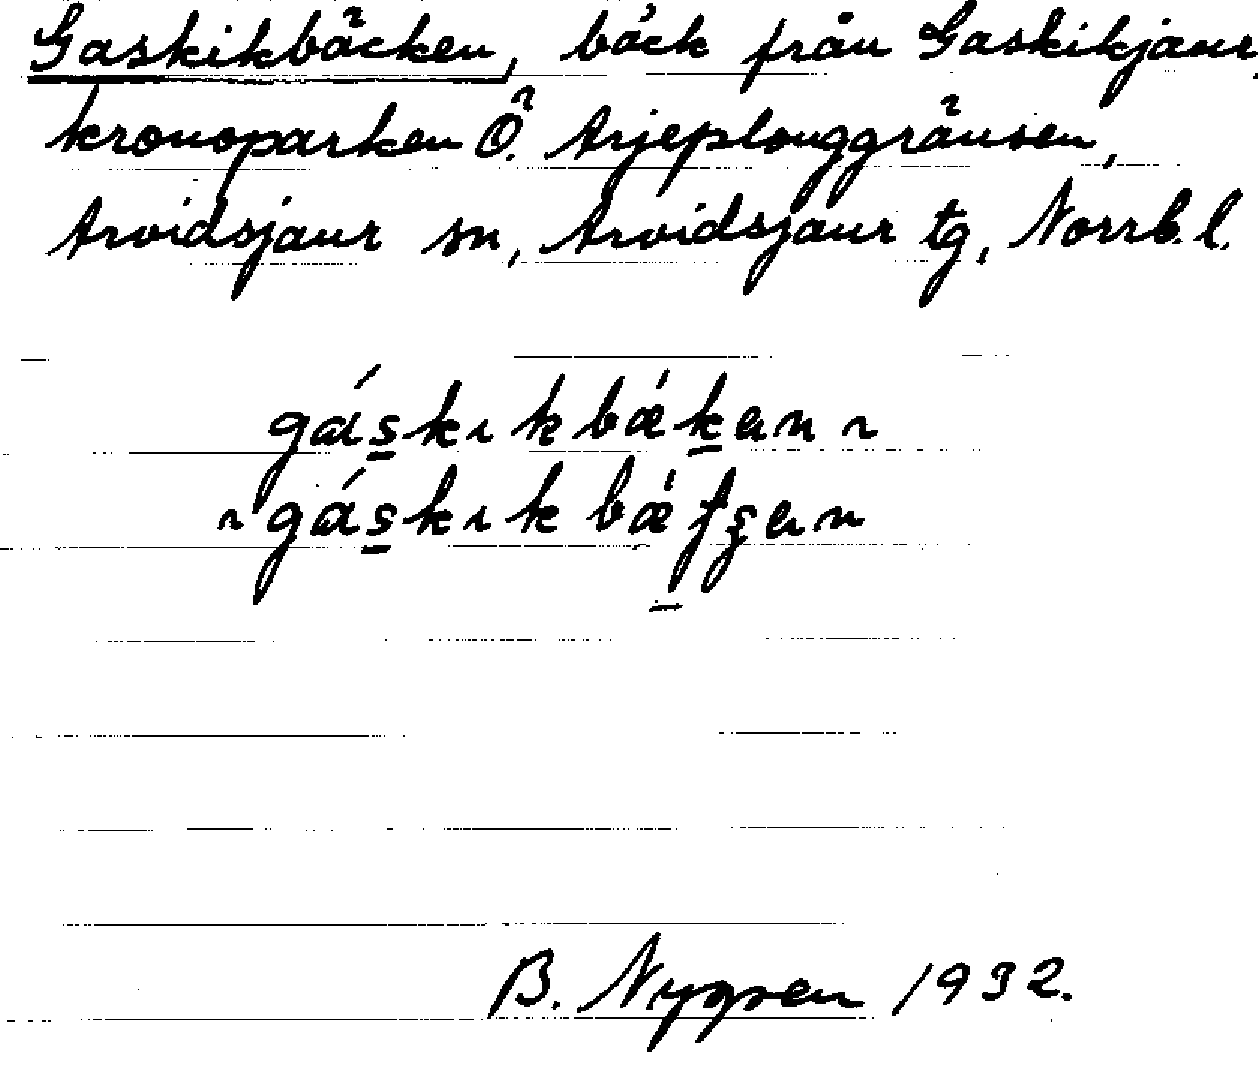 Gaskikbäcken, bäck från Gaskikjaur,
kronoparken Ö. Arjeplouggränsen,
Arvidsjaur sn, Arvidsjaur tg, Norrb. l.
gáskıkbǽkɐn ~
~ gáskıkbǽʈʂɐn
B. Nygren 1932.